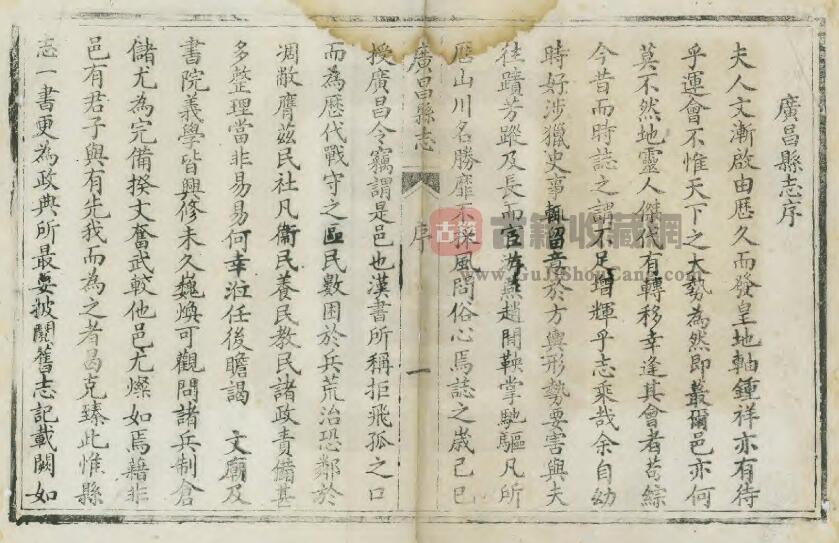 廣昌縣志序
夫人文漸啟由歷久而發皇地軸鍾祥亦有待
乎運會不惟天下之大勢為然即蕞爾邑亦何
莫不然地靈人傑代有轉移幸逢其會者苟綜
今昔而時誌之謂不足增輝乎志乘哉余自幼
時好涉獵史事輒留意於方輿形勢要害與夫
往蹟芳蹤及長而宦游燕趙間鞅掌馳驅凡所
歷山川名勝靡不採風問俗心焉誌之歲己巳
廣昌縣志
序
一
授廣昌令竊謂是邑也漢書所稱拒飛孤之口
而為歷代戰守之區民數困於兵荒治恐鄰於
凋敝膺茲民社凡衞民養民教民諸政責備甚
多整理當非易易何幸涖任後瞻謁 文廟及
書院義學皆興修未久巍煥可觀問諸兵制倉
儲尤為完備揆文奮武較他邑尤燦如焉藉非
邑有君子與有先我而為之者曷克臻此惟縣
志一書更為政典所最要披閱舊志記載闕如
古籍
古籍收藏網
www.GuJiShouCang.com